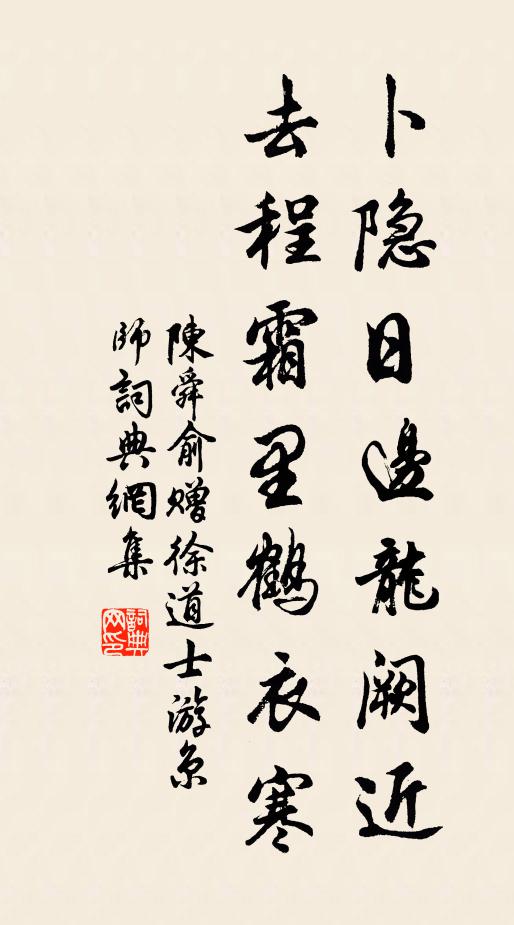 卜隐日邊龍阙近
去程霜里鶴衣寒
陳舜俞赠徐道士游京
師詞典網集
詞典网印